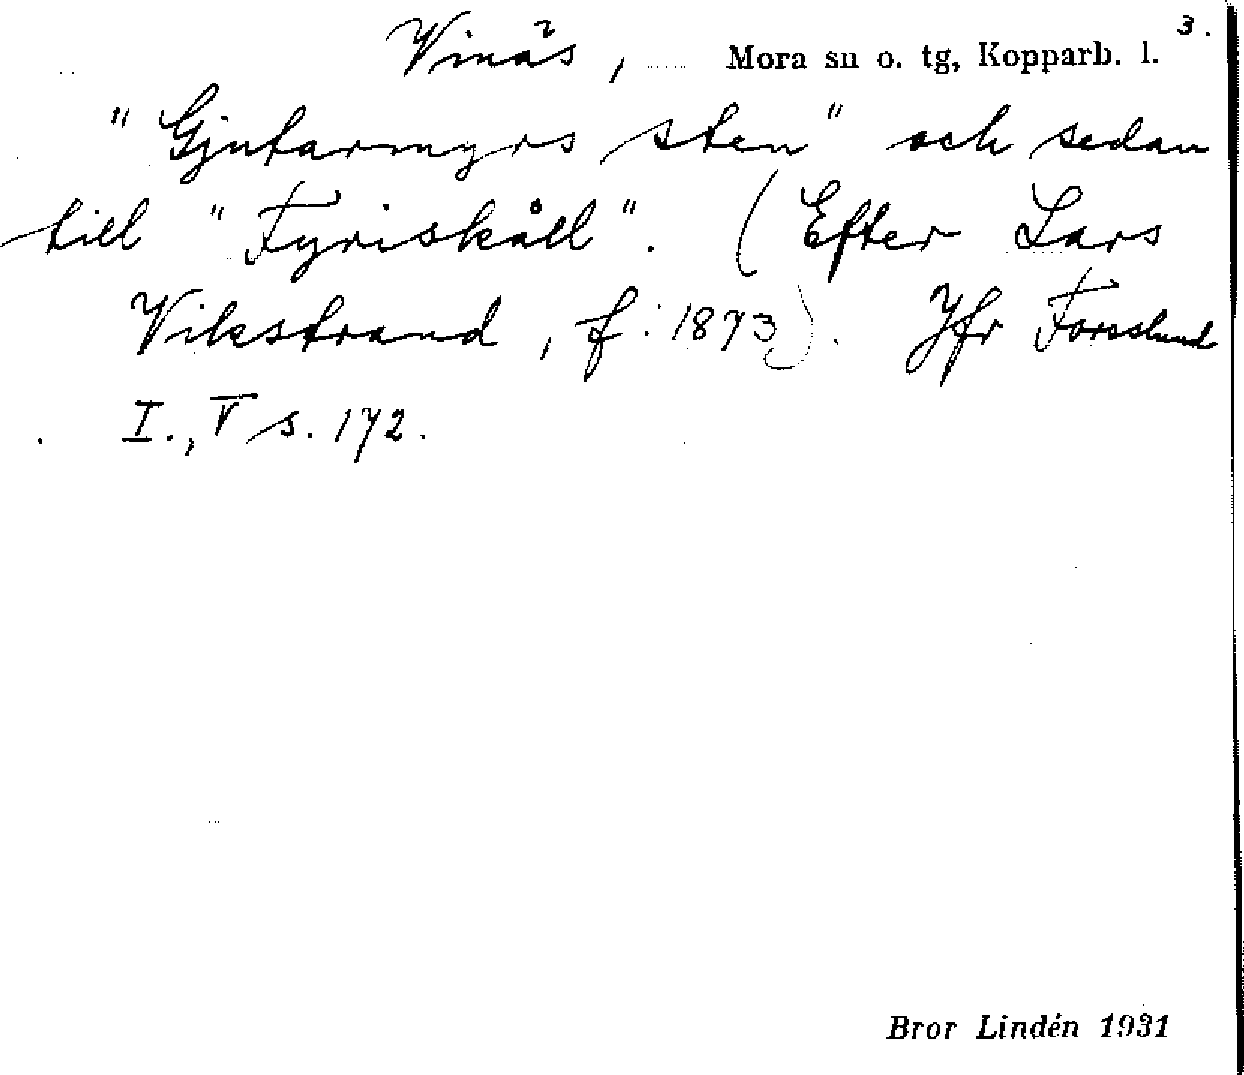 3.
Vinäs, Mora sn o. tg, Kopparb. l.
"Gjutarmyrs sten" och sedan
till "Fyriskåll". (Efter Lars
Vikstrand, f. 1873). Jfr Forsslund
I., V s. 172.
Bror Lindén 1931